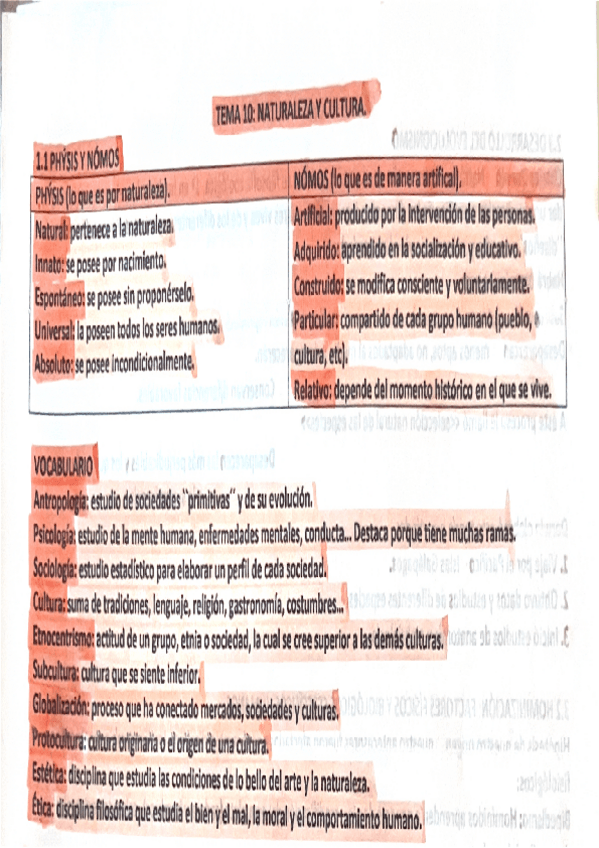 TEMA 10: NATURALEZA Y CULTURA.
1.1 PHÝSIS Y NÓMOS
PHÝSIS (lo que es por naturaleza).
Natural: pertenece a la naturaleza.
Innato: se posee por nacimiento.
Espontáneo: se posee sin proponérselo.
Universal: la poseen todos los seres humanos.
Absoluto: se posee incondicionalmente.
NÓMOS (lo que es de manera artifical).
Artificial: producido por la intervención de las personas.
Adquirido: aprendido en la socialización y educativo.
Construido: se modifica consciente y voluntariamente.
Particular: compartido de cada grupo humano (pueblo,
cultura, etc).
Relativo: depende del momento histórico en el que se vive.
VOCABULARIO
Antropología: estudio de sociedades "primitivas" y de su evolución.
Psicología: estudio de la mente humana, enfermedades mentales, conducta... Destaca porque tiene muchas ramas.
Sociología: estudio estadístico para elaborar un perfil de cada sociedad.
Cultura: suma de tradiciones, lenguaje, religión, gastronomía, costumbres...
Etnocentrismo: actitud de un grupo, etnia o sociedad, la cual se cree superior a las demás culturas.
Subcultura: cultura que se siente inferior.
Globalización: proceso que ha conectado mercados, sociedades y culturas.
Protocultura: cultura originaria o el origen de una cultura.
Estética: disciplina que estudia las condiciones de lo bello del arte y la naturaleza.
Ética: disciplina filosófica que estudia el bien y el mal, la moral y el comportamiento humano.